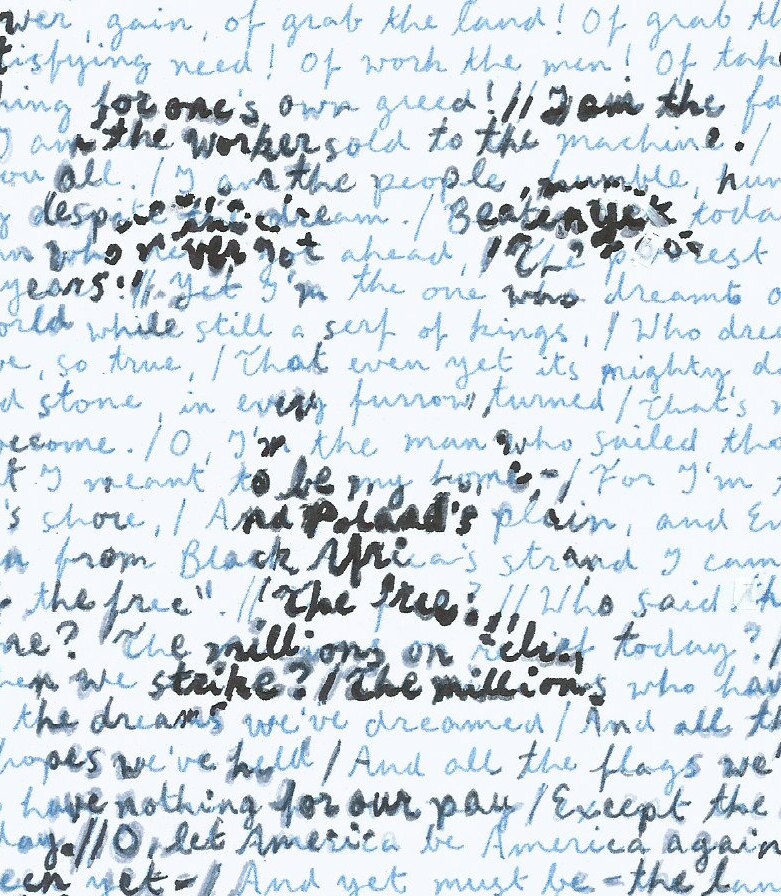 wer, gain, of grab the land! Of grab th
tisfying need! Of work the men! Of take
hing for one's own greed! // I am the fa
I am the worker sold to the machine. /
you all. / I am the people, humble, hun
despite the dream. / Beaten yet toda
n who never got ahead, / The poorest
years. // Yet I'm the one who dreamt o
orld while still a serf of kings, / Who drea
ve, so true, / That even yet its mighty da
d stone, in every furrow turned / That's m
become. / O, I'm the man who sailed tho
t I meant to be my home - / For I'm t
's shore, / And Poland's plain, and En
n from Black Africa's strand I cam
the free". // The free? // Who said the
me? The millions on relief today? /
hen we strike? / The millions who hav
the dreams we've dreamed / And all th
hopes we've held / And all the flags we'
have nothing for our pay / Except the
day. // O, let America be America again
een yet - / And yet must be - the lan